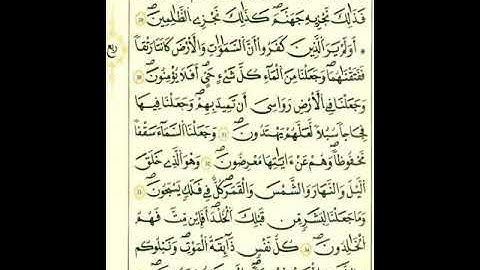 فَذَٰلِكَ نَجْزِيهِ جَهَنَّمَ ۚ كَذَٰلِكَ نَجْزِي الظَّالِمِينَ ۝٢٩
۞ أَوَلَمْ يَرَ الَّذِينَ كَفَرُوا أَنَّ السَّمَاوَاتِ وَالْأَرْضَ كَانَتَا رَتْقًا
ربع
فَفَتَقْنَاهُمَا ۖ وَجَعَلْنَا مِنَ الْمَاءِ كُلَّ شَيْءٍ حَيٍّ ۖ أَفَلَا يُؤْمِنُونَ ۝٣٠
وَجَعَلْنَا فِي الْأَرْضِ رَوَاسِيَ أَنْ تَمِيدَ بِهِمْ وَجَعَلْنَا فِيهَا
فِجَاجًا سُبُلًا لَعَلَّهُمْ يَهْتَدُونَ ۝٣١ وَجَعَلْنَا السَّمَاءَ سَقْفًا
مَحْفُوظًا ۖ وَهُمْ عَنْ آيَاتِهَا مُعْرِضُونَ ۝٣٢ وَهُوَ الَّذِي خَلَقَ
اللَّيْلَ وَالنَّهَارَ وَالشَّمْسَ وَالْقَمَرَ ۖ كُلٌّ فِي فَلَكٍ يَسْبَحُونَ ۝٣٣
وَمَا جَعَلْنَا لِبَشَرٍ مِنْ قَبْلِكَ الْخُلْدَ ۖ أَفَإِنْ مِتَّ فَهُمُ
الْخَالِدُونَ ۝٣٤ كُلُّ نَفْسٍ ذَائِقَةُ الْمَوْتِ ۗ وَنَبْلُوكُمْ